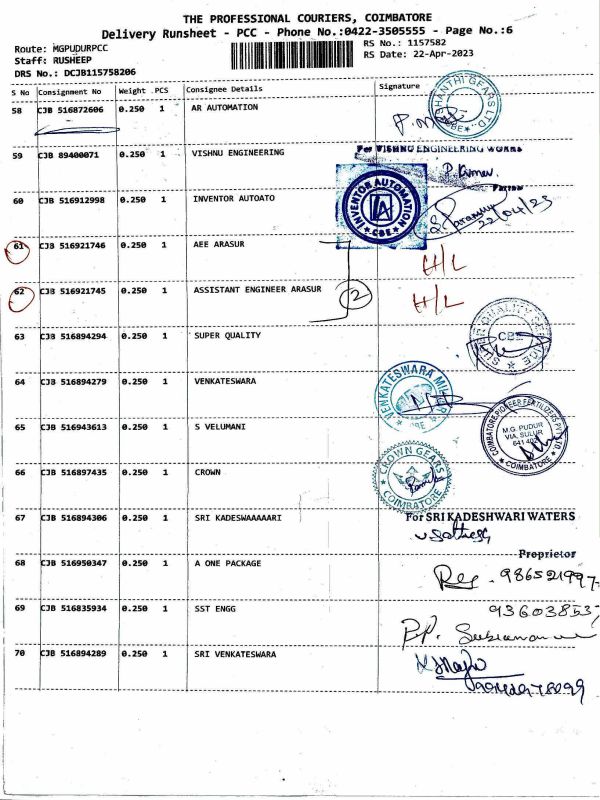 THE PROFESSIONAL COURIERS, COIMBATORE
Delivery Runsheet - PCC - Phone No.:0422-3505555 - Page No.:6
Route: MGPUDURPCC
RS No.: 1157582
Staff: RUSHEEP
RS Date: 22-Apr-2023
DRS No.: DCJB115758206
S No Consignment No Weight .PCS Consignee Details Signature
58 CJB 516872606 0.250 1 AR AUTOMATION
SHANTHI GEARS LTD., CBE
59 CJB 89400071 0.250 1 VISHNU ENGINEERING
For VISHNU ENGINEERING WORKS
P. Kumar
Partner
60 CJB 516912998 0.250 1 INVENTOR AUTOATO
INVENTOR AUTOMATION
IA
CBE
22/04/23
61 CJB 516921746 0.250 1 AEE ARASUR
H/L
62 CJB 516921745 0.250 1 ASSISTANT ENGINEER ARASUR
2
H/L
63 CJB 516894294 0.250 1 SUPER QUALITY
SUPER QUALITY SERVICE
CBE
64 CJB 516894279 0.250 1 VENKATESWARA
VENKATESWARA
65 CJB 516943613 0.250 1 S VELUMANI
COIMBATORE PIONEER FERTILIZERS PVT LTD
M.G. PUDUR
VIA, SULUR
COIMBATORE
66 CJB 516897435 0.250 1 CROWN
CROWN GEARS
COIMBATORE
67 CJB 516894306 0.250 1 SRI KADESWAAAAARI
For SRI KADESHWARI WATERS
Proprietor
68 CJB 516950347 0.250 1 A ONE PACKAGE
986521997
69 CJB 516835934 0.250 1 SST ENGG
936038537
70 CJB 516894289 0.250 1 SRI VENKATESWARA